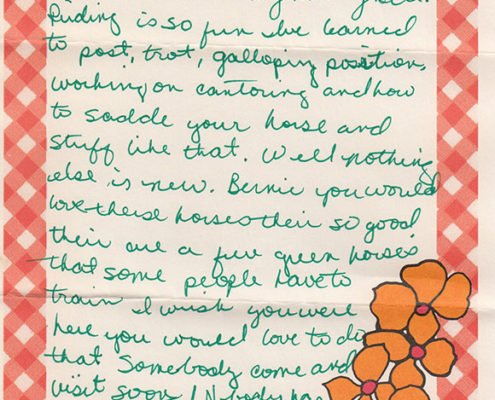 Riding is so fun Ive learned
to post, trot, galloping position,
working on cantoring and how
to sadde your horse and
stuff like that. Well nothing
else is new. Bernie you would
love these horses their so good
their are a few green horses
that some people have to
train I wish you were
here you would love to do
that Somebody come and
visit soon! Nobody has